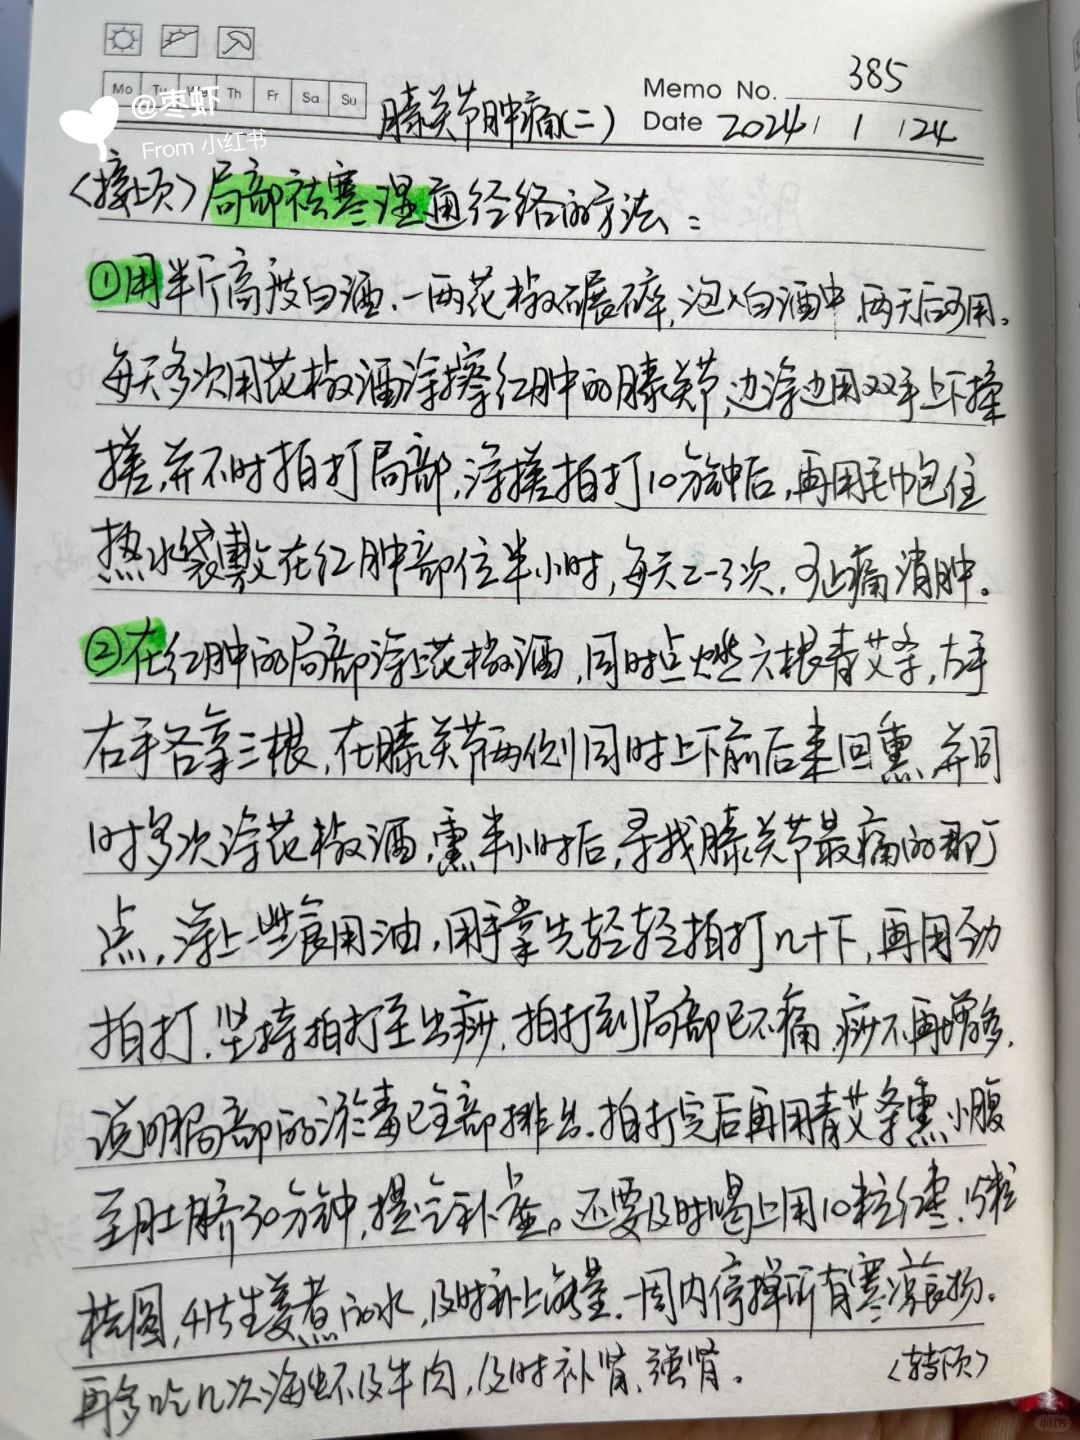 Mo Tu We Th Fr Sa Su
Memo No. 385
@枣虾
From 小红书
膝关节肿痛(二)
Date 2024 / 1 / 24
<接上页>局部祛寒湿通经络的方法:
①用半斤高度白酒、一两花椒碾碎,泡入白酒中,两天后可用。
每天多次用花椒酒涂擦红肿的膝关节,边涂边用双手上下揉
搓,并不时拍打局部,涂搓拍打10分钟后,再用毛巾包住
热水袋敷在红肿部位半小时,每天2-3次,可止痛消肿。
②在红肿的局部涂上花椒酒,同时点燃六根青艾条,左手
右手各拿三根,在膝关节两侧同时上下前后来回熏,并同
时多次涂花椒酒,熏半小时后,寻找膝关节最痛的那个
点,涂上一些食用油,用手掌先轻轻拍打几十下,再用劲
拍打,坚持拍打至出痧,拍打到局部已不痛,痧不再增多,
说明局部的淤毒已全部排出。拍打完后再用青艾条熏小腹
至肚脐30分钟,提气补虚。还要及时喝上用10粒红枣,15粒
桂圆,4片生姜煮的水,及时补上能量,一周内停掉所有寒凉食物。
再多吃几次海虾及牛肉,及时补肾、强肾。
<转下页>
小红书